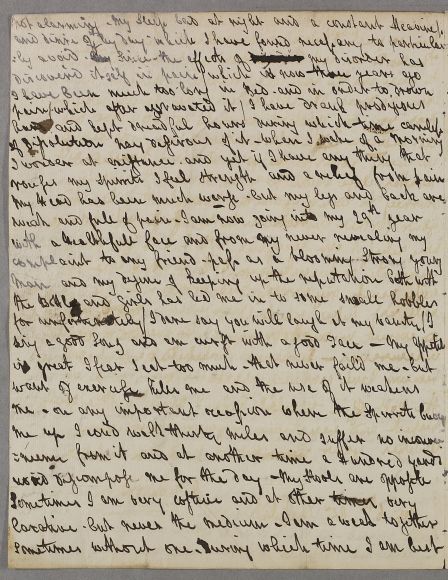 not alarming. My Sleep bad at night and a constant Heaviness
and desire of it by Day which I have found necessary to particular
-ly avoid. Since the effects of my disorder has
discovered itself in pain, which is now three years ago
I have been much too lazy in Bed. and in order to drown
pain (which after aggravated it) I have drank prodigous
hard and kept dreadful hours during which time careless
of Dissolution nay desirous of it. when I wake of a morning
I wonder at existance and yet if I have any thing that
rouses my Spirits I feel strength and a relief from pain
My Head has been much worse. but my legs and back are
weak and full of pain. I am now going into my 29th year
with a healthfull face and from my never revealing my
complaint to any friend. pass as a blooming strong young
man and my desire of keeping up the reputation both with
the and Girls has led me in to some small hobbles
for unfortunately I dare say you will laugh at my vanity I
sing a good Song and am curst with a good Face — My appetite
is great I fear I eat too much. that never faild me. but
want of exercise kills me and the use of it weakens
me. on any important occasion where the Spirits buoy
me up I coud walk thirty Miles and suffer no inconv
-enience from it and at another time a Hundred yards
woud discompose me for the day — My Stools are opposite
Sometimes I am very costive and at other times very
laxative. but never the medium. I am a week together
sometimes without one. During which time I am best